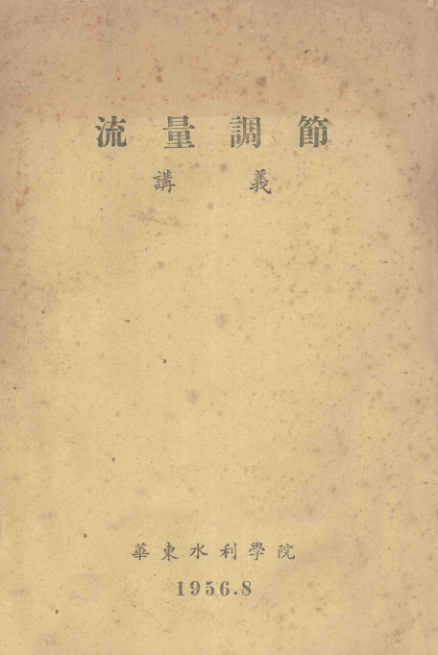 流量調節
講義
華東水利學院
1956.8